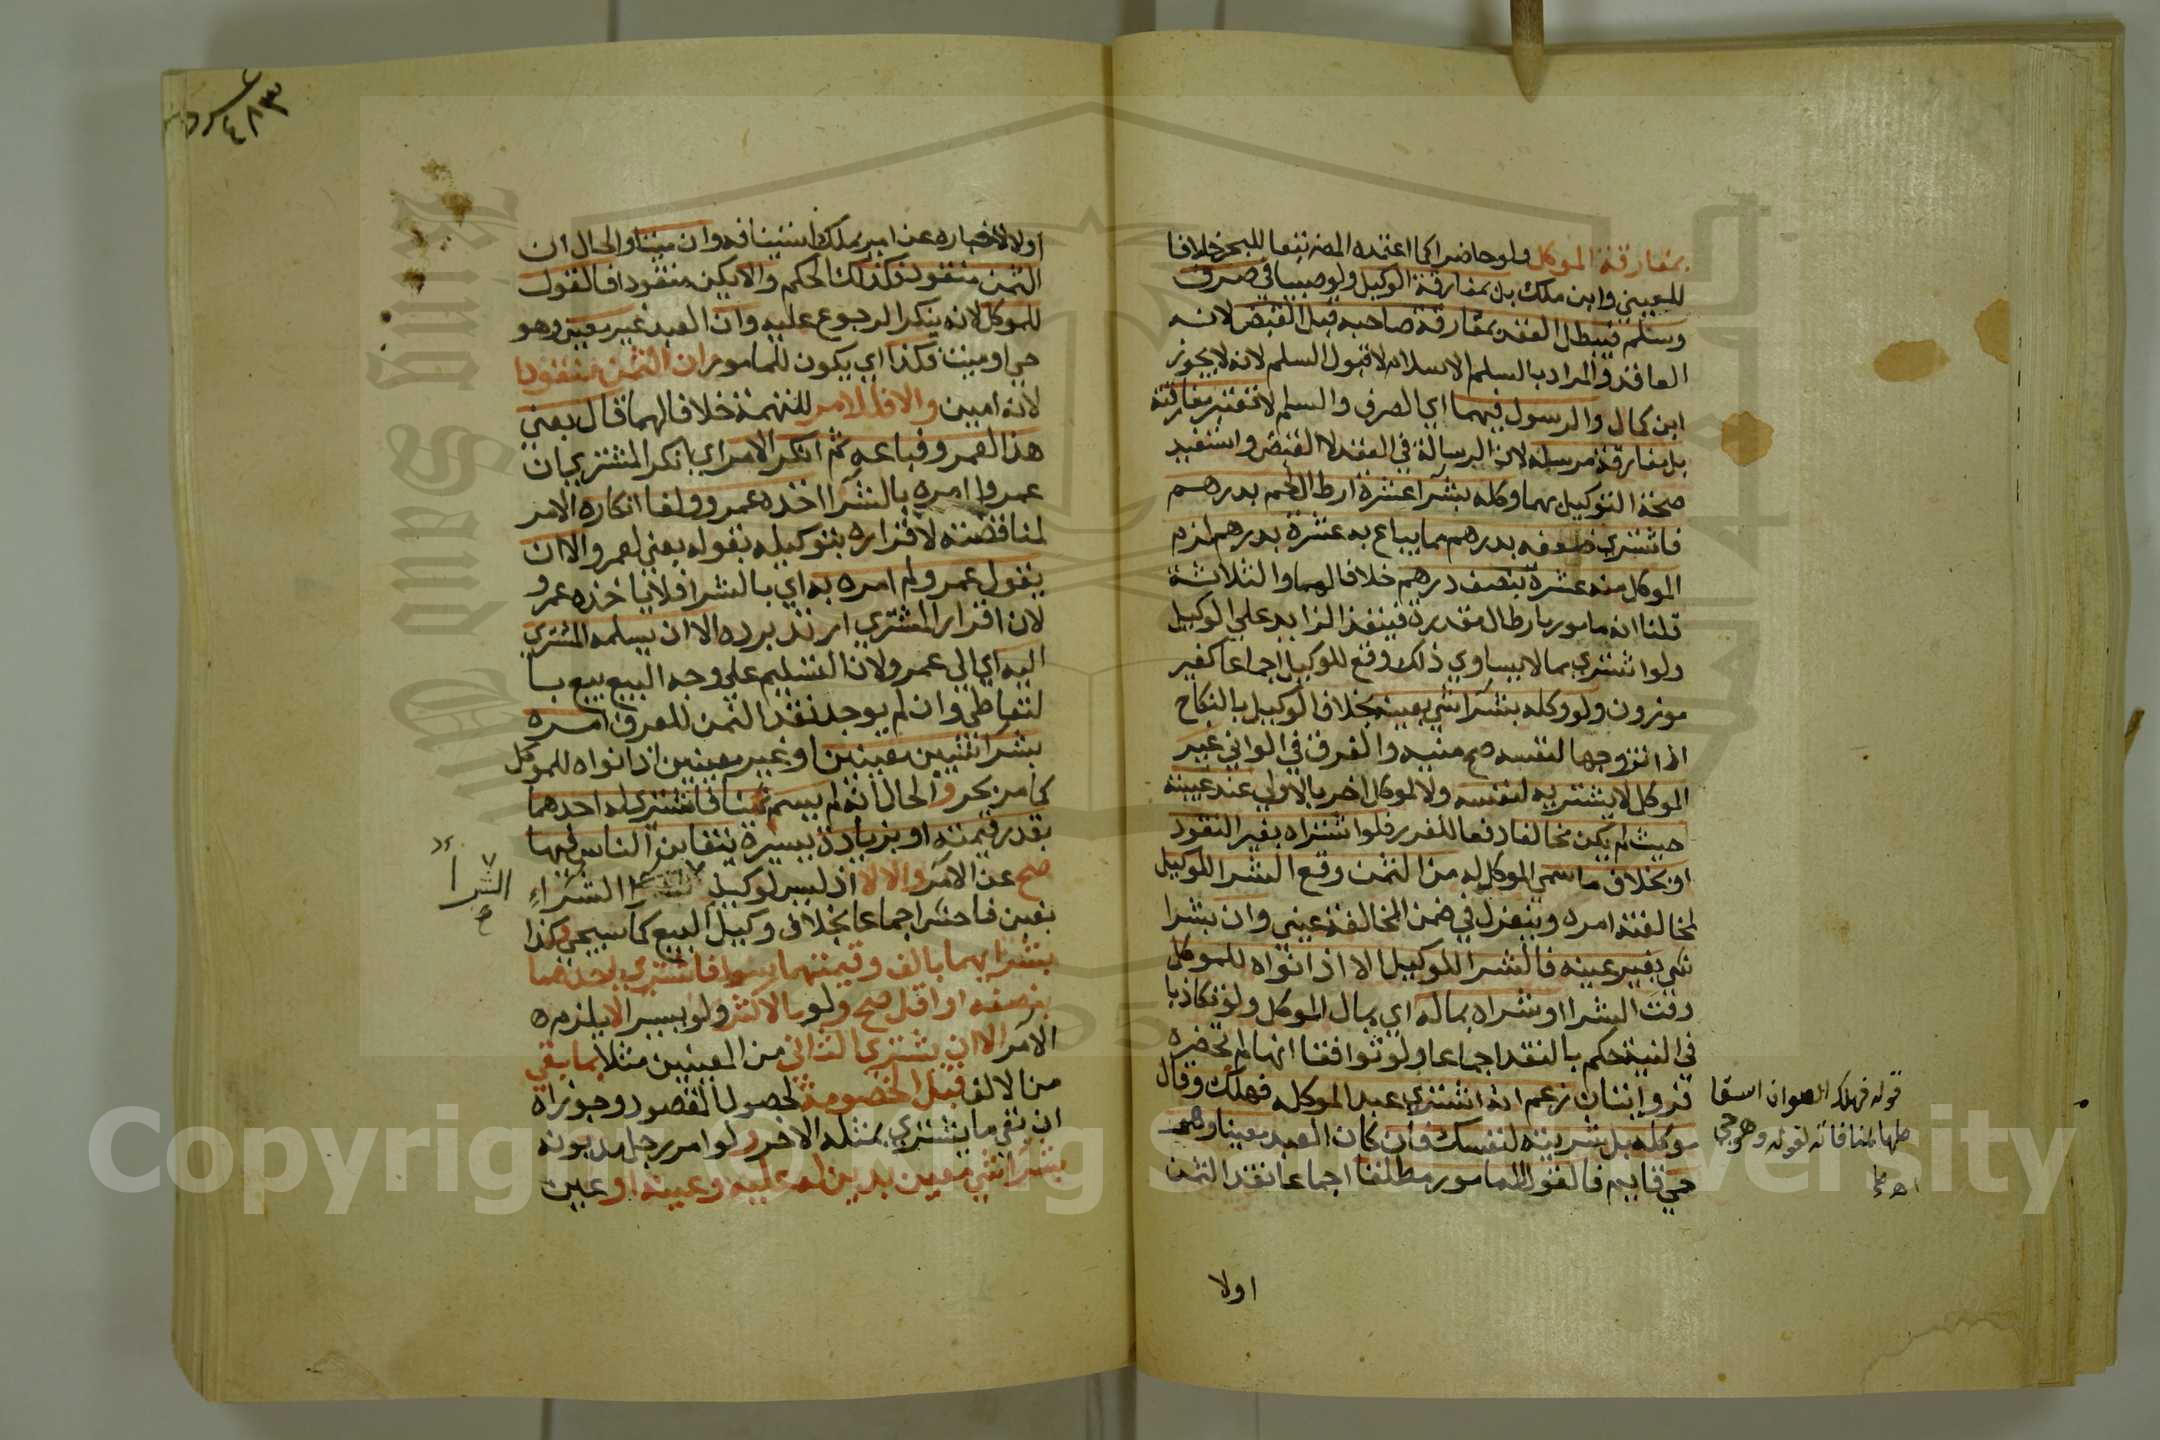 بمفارقة الموكل ولو حاضرا كما اعتمده المص تبعا للبحر خلافا
للعيني وابن ملك بل بمفارقة الوكيل ولو صبيا في صرف
وسلم فيبطل العقد بمفارقة صاحبه قبل القبض لانه
العاقد والمراد بالسلم الاسلام لا قبول السلم لانه لا يجوز
ابن كمال والرسول فيهما اي الصرف والسلم لا تعتبر مفارقته
بل مفارقة مرسله لان الرسالة في العقد لا القبض واستفيد
صحة التوكيل بهما وكله بشرا عشرة ارطال لحم بدرهم
فاشترى ضعفه بدرهم مما يباع به عشرة بدرهم لزم
الموكل منه عشرة بنصف درهم خلافا لهما والثلاثة
قلنا انه مامور بارطال مقدرة فينفذ الزايد على الوكيل
ولو اشترى بما لا يساوي ذلك وقع للوكيل اجماعا كغير
موزون ولو وكله بشرا شي بعينه بخلاف الوكيل بالنكاح
اذا تزوجها لنفسه صح منيه والفرق في الواني غير
الموكل لا يشتريه لنفسه ولا لموكل اخر بالاولى عند غيبته
حيث لم يكن مخالفا دفعا للغرر فلو اشتراه بغير النقود
او بخلاف ما سمى الموكل له من الثمن وقع الشرا للوكيل
لمخالفته امره وينعزل في ضمن المخالفة عيني وان بشرا
شي بغير عينه فالشرا للوكيل الا اذا نواه للموكل
وقت الشرا او شراه بماله اي بمال الموكل ولو تكاذبا
في النية حكم بالنقد اجماعا ولو توافقا انها لم تحضره
فروايتان زعم انه اشترى عبد الموكله فهلك وقال
موكله بل شريته لنفسك فان كان العبد معينا وهو
حي قايم فالقول للمامور مطلقا اجماعا نقد الثمن
قوله فهلك الصواب اسقا
طها لمنافاته لقوله وهو حي
اه ط
اولا
٤٨٣
اولا لاخباره عن امر يملك استينافه وان ميتا والحال ان
الثمن منقود فكذلك الحكم والا يكن منقودا فالقول
للموكل لانه ينكر الرجوع عليه وان العبد غير معين وهو
حي او ميت فكذا اي يكون للمامور ان الثمن منقودا
لانه امين والا فللامر للتهمة خلافا لهما قال بعني
هذا لعمرو فباعه ثم انكر الامر اي انكر المشتري ان
عمروا امره بالشرا اخذه عمرو ولغا انكاره الامر
لمناقضته لاقراره بتوكيله بقوله بعني لعمرو الا ان
يقول عمرو لم امره به اي بالشرا فلا ياخذه عمرو
لان اقرار المشتري ارتد برده الا ان يسلمه المشتري
اليه اي الى عمرو لان التسليم على وجه البيع بيع با
لتعاطي وان لم يوجد نقد الثمن للعرف امره
بشرا شيين معينين او غير معينين اذا نواه للموكل
كما مر بحر والحال انه لم يسم ثمنا فاشترى له احدهما
بقدر قيمته او بزيادة يسيرة يتغابن الناس فيها
صح عن الامر والا لا اذ ليس لوكيل الشراء
الشرا
صح
بغبن فاحش اجماعا بخلاف وكيل البيع كما سيجي وكذا
بشرايهما بالف وقيمتهما سوا فاشترى احدهما
بنصفه او اقل صح ولو بالاكثر ولو يسيرا لا يلزم
الامر الا ان يشتري الثاني من المعينين مثلا بما بقي
من الالف قبل الخصومة لحصول المقصود وجوزاه
ان بقي ما يشتري بمثله الاخر ولو امر رجل مديونه
بشرا شي معين بدين له عليه وعينه او عين